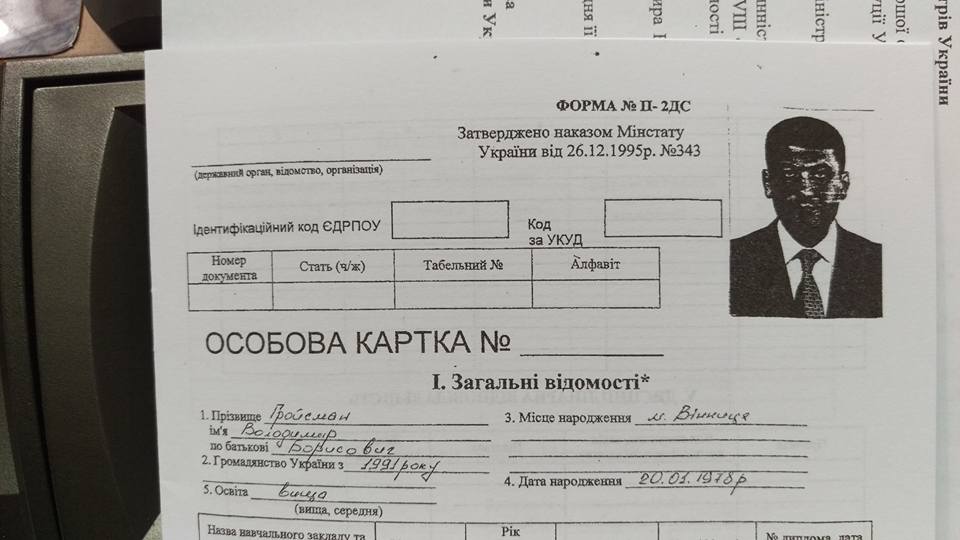 трів України
ршої
ції У
іністр
инніст
VIII
ності
ира
дня її
ва
и Ук
ФОРМА № П- 2ДС
Затверджено наказом Мінстату
України від 26.12.1995р. №343
(державний орган, відомство, організація)
Ідентифікаційний код ЄДРПОУ
Код
за УКУД
Номер документа Стать (ч/ж) Табельний № Алфавіт
ОСОБОВА КАРТКА № 
I. Загальні відомості*
1. Прізвище Гройсман
ім'я Володимир
по батькові Борисович
2. Громадянство України з 1991 року
3. Місце народження м. Вінниця
4. Дата народження 20.01.1978р
5. Освіта вища
(вища, середня)
Назва навчального закладу та Рік № диплома, дата